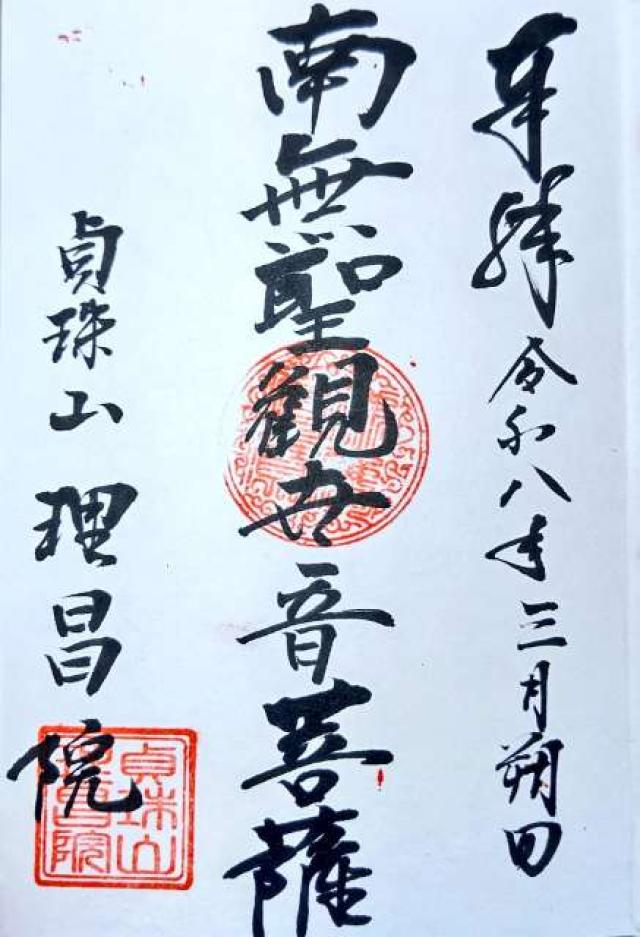 奉拝 令和八年三月朔日
南無聖観世音菩薩
貞珠山 理昌院
貞珠山
理昌院